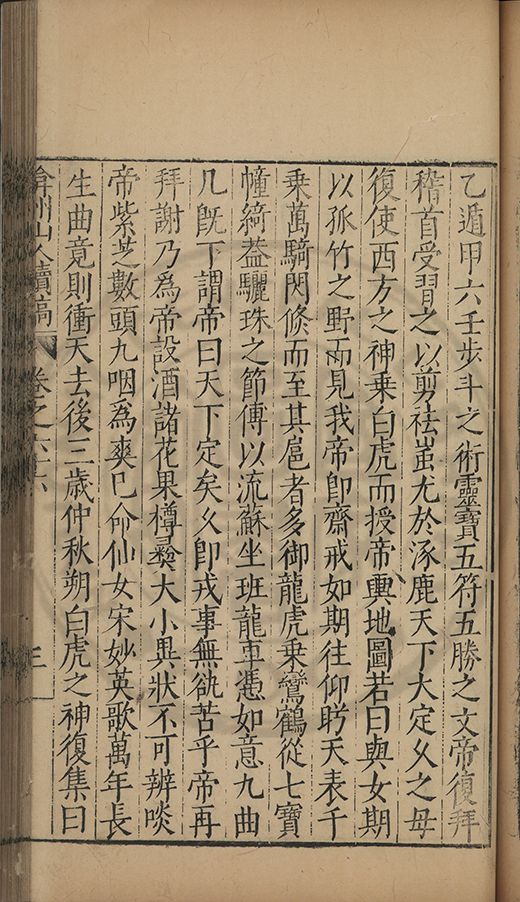 乙遁甲六壬步斗之術靈寶五符五勝之文帝復拜
稽首受習之以剪祛蚩尤於涿鹿天下大定久之毋
復使西方之神乗白虎而授帝輿地圖若曰與女期
以孤竹之野而見我帝卽齋戒如期徃仰䀎天表千
乗萬騎閃倏而至其扈者多御龍虎乗鸞鶴從七寶
幢綺葢驪珠之節傅以流蘇坐班龍車憑如意九曲
几旣下謂帝曰天下定矣久卽戎事無欲苦乎帝再
拜謝乃爲帝設酒諸花果樽彞大小異狀不可辨啖
帝紫芝數頭九咽爲爽巳命仙女宋妙英歌萬年長
生曲竟則衝天去後三歲仲秋朔白虎之神復集曰
弇州山人續稿 卷之六十六 三